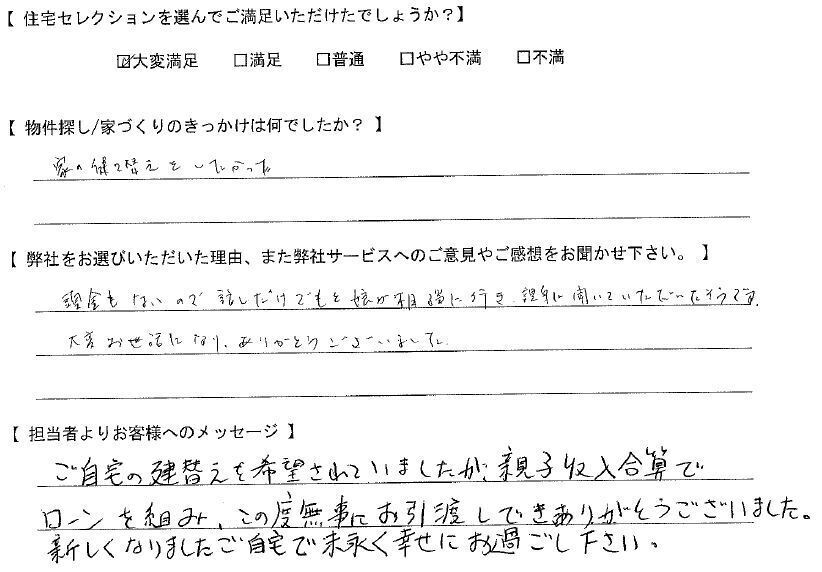 【 住宅セレクションを選んでご満足いただけたでしょうか？】
☑大変満足 □満足 □普通 □やや不満 □不満
【 物件探し/家づくりのきっかけは何でしたか？ 】
家の建て替えをしたかった
【 弊社をお選びいただいた理由、また弊社サービスへのご意見やご感想をお聞かせ下さい。 】
頭金もないので話しだけでもと娘が相談に行き、親身に聞いていただいたそうです。
大変お世話になり、ありがとうございました。
【 担当者よりお客様へのメッセージ 】
ご自宅の建替えを希望されていましたが、親子収入合算で
ローンを組み、この度無事にお引渡しできありがとうございました。
新しくなりましたご自宅で末永く幸せにお過ごし下さい。